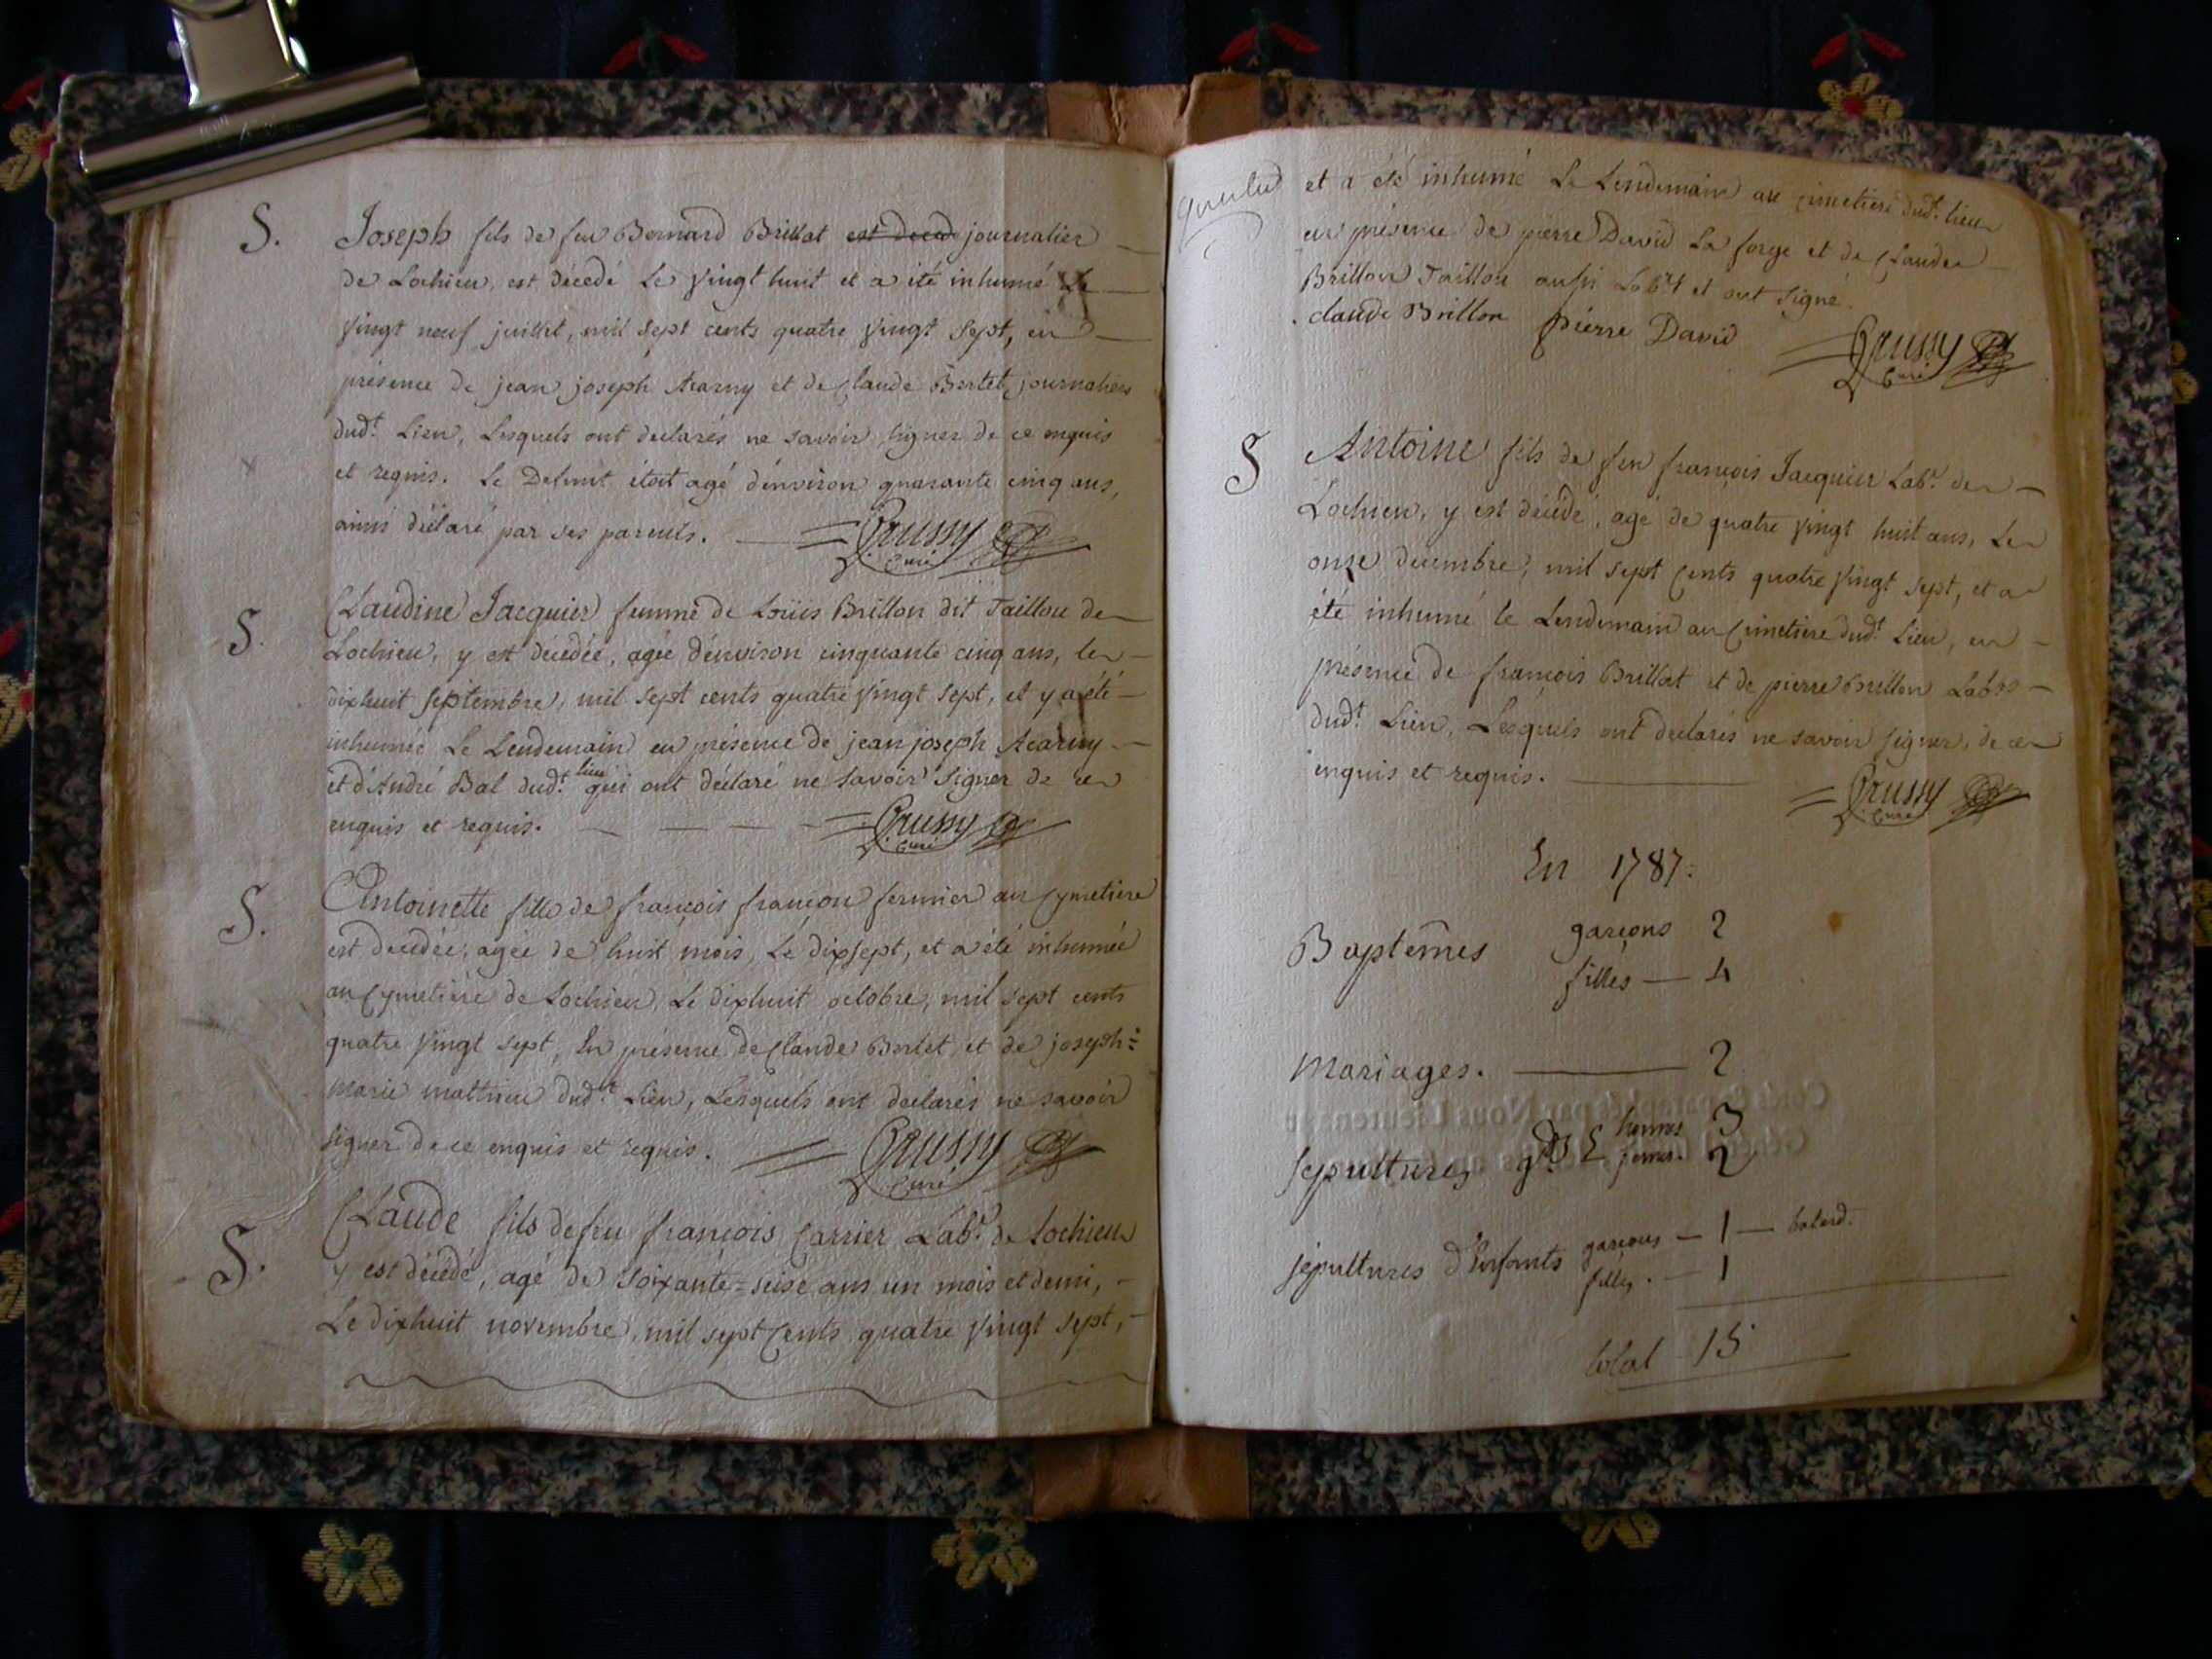 S. Joseph fils de feu Bernard Brillat est deced journalier
de Lochieu, est décedé le vingt huit et a été inhumé le
vingt neuf juillet, mil sept cents quatre vingt sept, en
présence de jean joseph Acarny et de Claude Bertet, journaliers
dud.t Lieu, Lesquels ont declarés ne savoir signer de ce enquis
et requis. Le Defunt étoit agé d'environ quarante cinq ans,
ainsi déclaré par ses parents. Crussy
Curé
S. Claudine Jacquier femme de Loüis Brillon dit Taillon de
Lochieu, y est décedée, agée d'environ cinquante cinq ans, le
dixhuit septembre, mil sept cents quatre vingt sept, et y a été
inhumée Le Lendemain en présence de jean joseph Acarny
et d'André Bal dud.t lieu qui ont déclaré ne savoir signer de ce
enquis et requis. Crussy
Curé
S. Antoinette fille de françois françon fermier au Cymetiere
est decedée, agée de huit mois, Le dixsept, et a été inhumée
au Cymetiere de Lochieu, Le dixhuit octobre, mil sept cents
quatre vingt sept, En présence de Claude Bertet, et de joseph=
marie mathieu dud.t Lieu, Lesquels ont déclarés ne savoir
signer de ce enquis et requis. Crussy
Curé
S. Claude fils de feu françois Carrier Lab.r de Lochieu
y est décédé, agé de soixante=seise ans un mois et demi,
Le dixhuit novembre, mil sept Cents quatre vingt sept,
et a été inhumé Le Lendemain au cimetiere dud.t lieu
en présence de pierre David La forge et de Claude
Brillon Taillon aussi Lab.rs et ont signé.
claude Brillon pierre David
Crussy
Curé
S Antoine fils de feu françois Jacquier Lab.r de
Lochieu, y est décédé, agé de quatre vingt huit ans, Le
onze decembre, mil sept Cents quatre vingt sept, et a
été inhumé le Lendemain au Cimetiere dud.t Lieu, en
présence de françois Brillat et de pierre Brillon Lab.rs
dud.t Lieu, Lesquels ont declarés ne savoir signer, de ce
enquis et requis.
Crussy
Curé
En 1787.
Baptêmes garçons 2
filles — 4
Mariages. — 2
sepultures hommes 3
femmes 2
sépultures d'Enfants garçons — 1 — batard.
filles. — 1
total 15